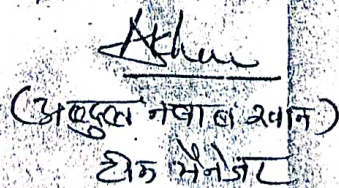 (अब्दुल नवाब खान)
टीम मैनेजर